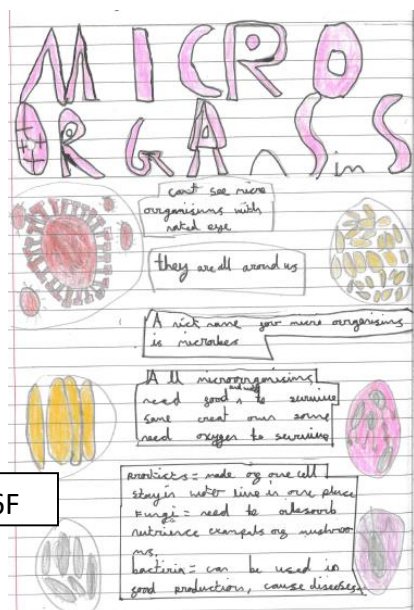 MICRO
ORGANSims
cant see micro
orrganisums with
naked eye
they are all around us
A nick name for micro orrganisims
is microbes
All microorrganisims
and water
need food ^ to survive
some creat own some
need oxygen to survive
protticts = made of one cell
stay in water live in one place
Fungi = need to adasoorb
nutrience exampals of mushroo-
ms.
bacteria = can be used in
food production, cause diseases
6F